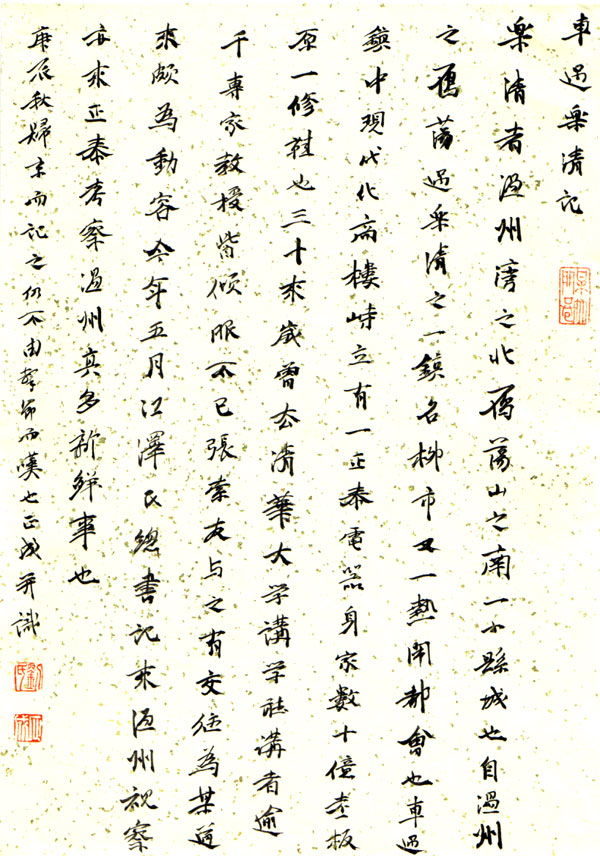 車過樂清記
樂清者温州灣之北雁蕩山之南一小縣城也自温州
之雁蕩過樂清之一鎮名柳市又一熱鬧都會也車過
鎮中現代化高樓峙立有一正泰電器身家數十億老板
原一修鞋也三十來歲曾去清華大学講学聽講者逾
千專家教授皆傾服不已張索友与之有交往為某道
來頗為動容今年五月江澤民總書記來温州視察
亦來正泰考察温州真多新鮮事也
庚辰秋歸京而記之仍不由擊節而嘆也正成并識
劉氏
正成